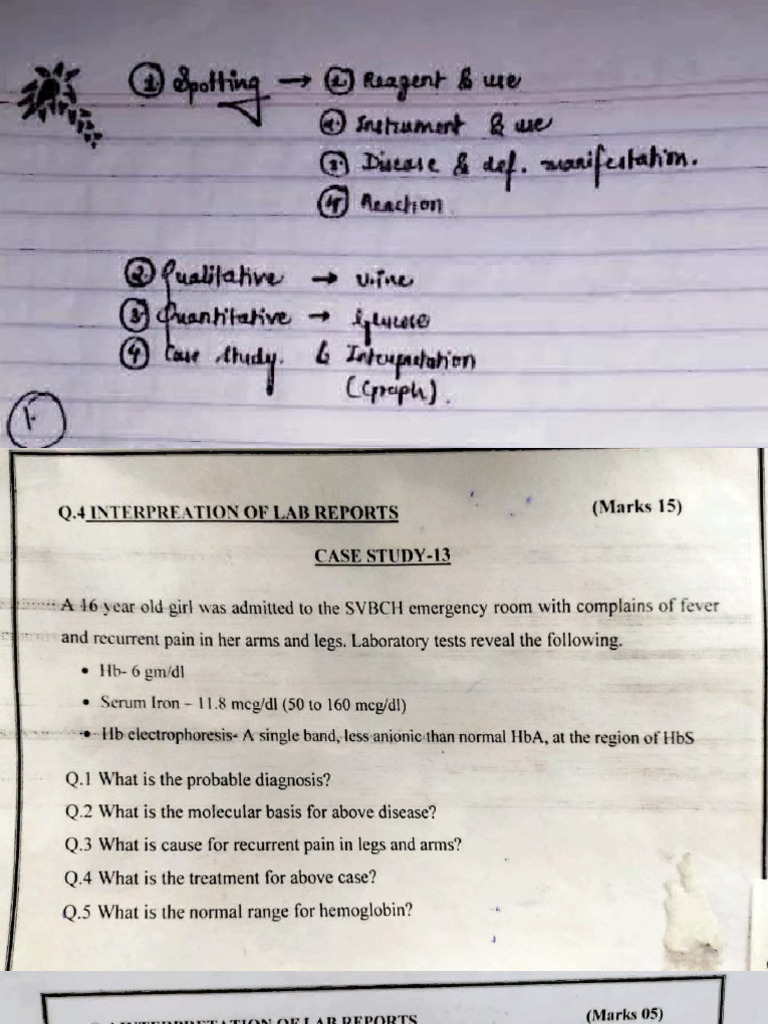 ① Spotting → ① Reagent & use
② Instrument & use
③ Disease & def. manifestation.
④ Reaction
② Qualitative → Urine
③ Quantitative → Glucose
④ Case study. & Interpretation
(Graph).
1.
Q.4 INTERPREATION OF LAB REPORTS (Marks 15)
CASE STUDY-13
A 16 year old girl was admitted to the SVBCH emergency room with complains of fever
and recurrent pain in her arms and legs. Laboratory tests reveal the following.
• Hb- 6 gm/dl
• Serum Iron – 11.8 mcg/dl (50 to 160 mcg/dl)
• Hb electrophoresis- A single band, less anionic than normal HbA, at the region of HbS
Q.1 What is the probable diagnosis?
Q.2 What is the molecular basis for above disease?
Q.3 What is cause for recurrent pain in legs and arms?
Q.4 What is the treatment for above case?
Q.5 What is the normal range for hemoglobin?
INTERPRETATION OF LAB REPORTS (Marks 05)